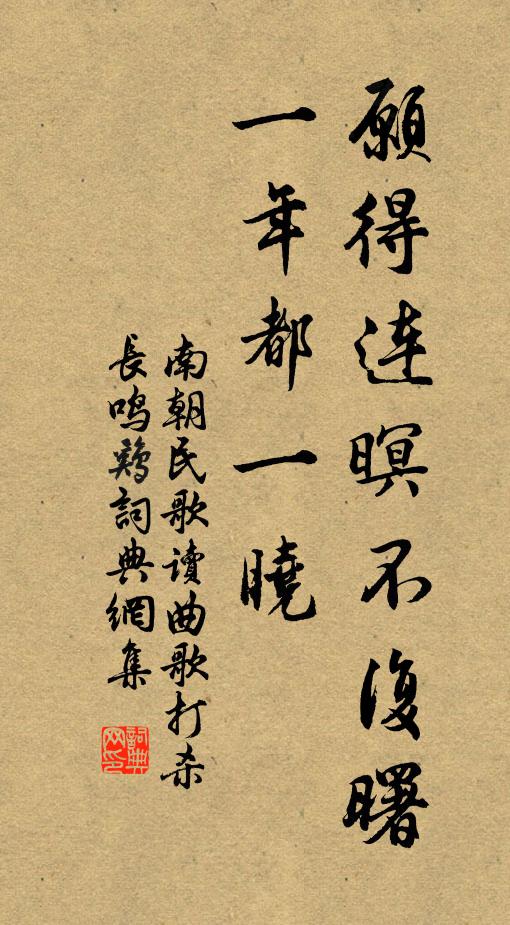 願得連暝不復曙
一年都一曉
南朝民歌讀曲歌打杀
長鸣鷄詞典網集
詞典网印